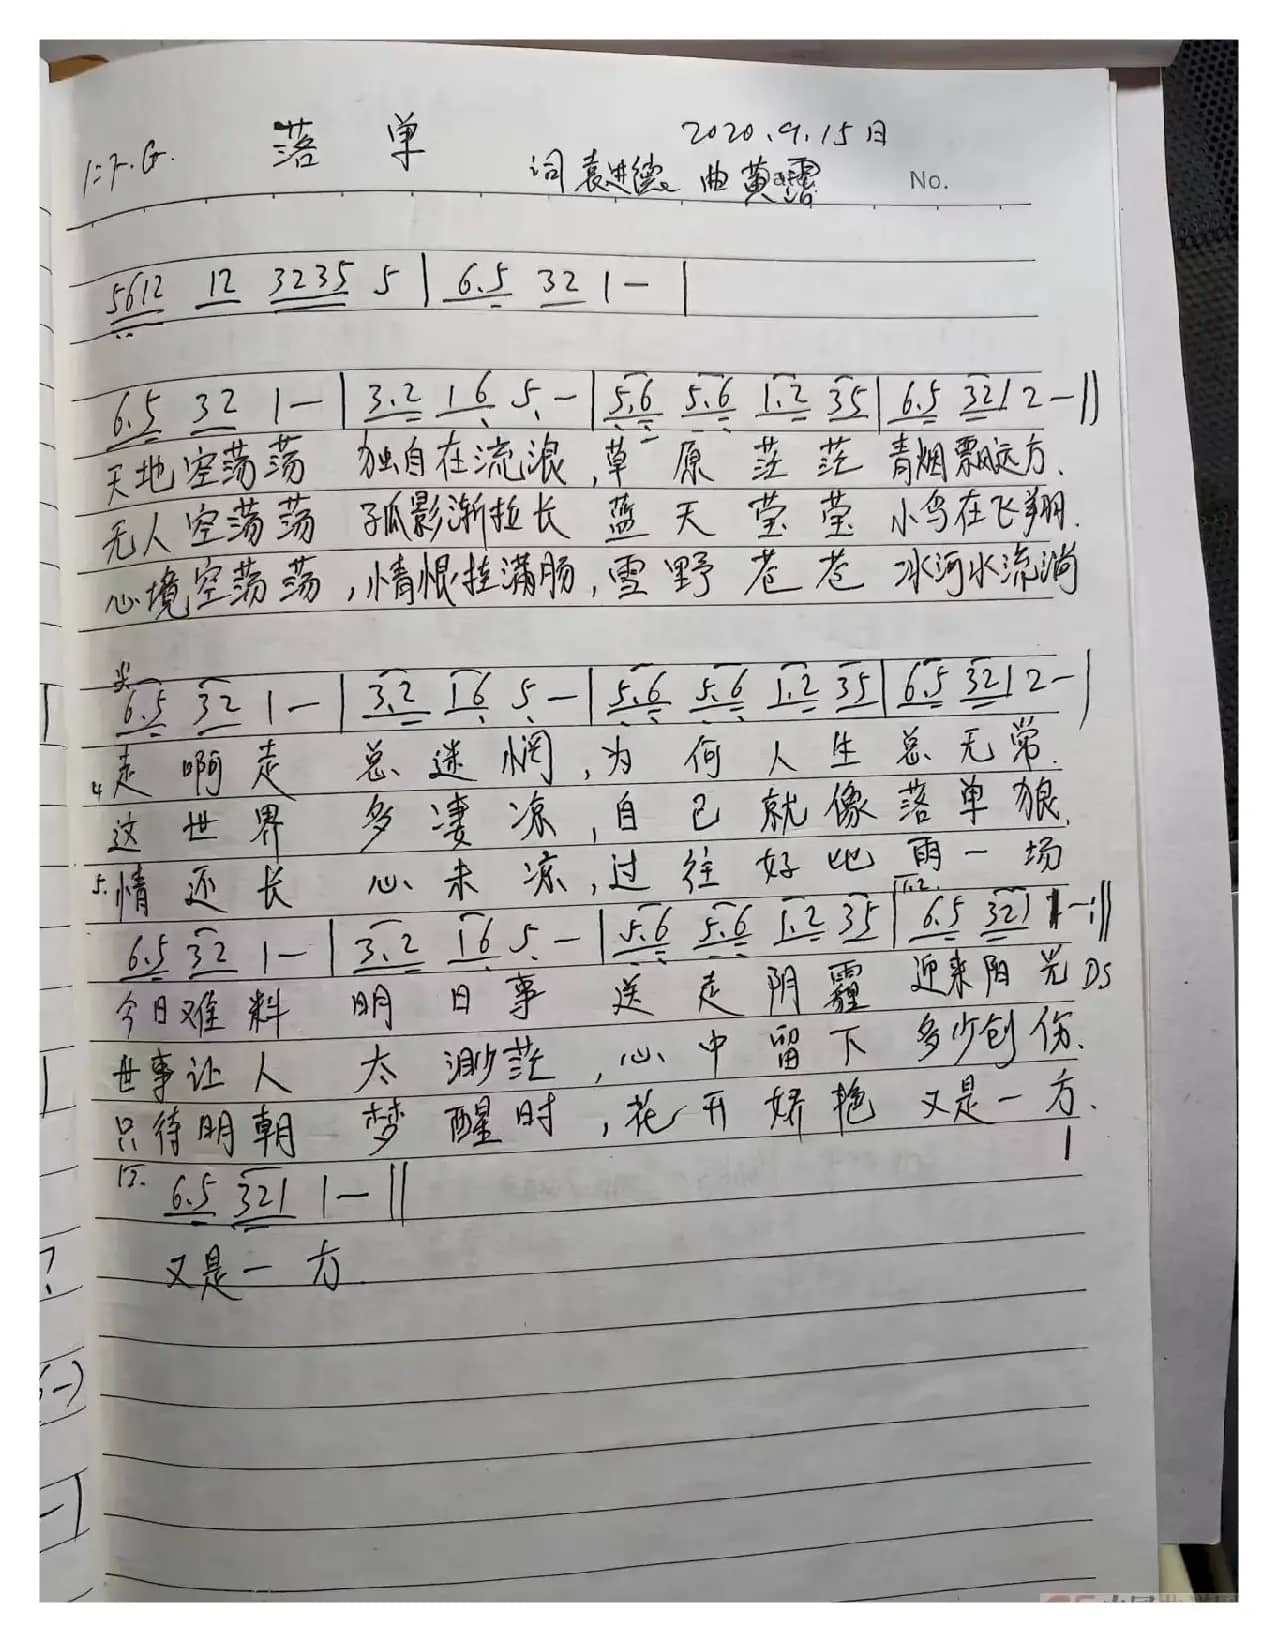 落 单 2020.9.15日
1=F.G. 词袁进德 曲黄 No.
5612 12 3235 5 | 6.5 32 1 — |
6.5 32 1 — | 3.2 16 5 — | 5.6 5.6 1.2 35 | 6.5 321 2 — ||
天地空荡荡 独自在流浪,草原茫茫 青烟飘远方.
无人空荡荡 孤影渐拉长 蓝天莹莹 小鸟在飞翔.
心境空荡荡,情恨挂满肠,雪野苍苍 冰河水流淌
6.5 32 1 — | 3.2 16 5 — | 5.6 5.6 1.2 35 | 6.5 321 2 — |
4 走啊走 总迷惘,为何人生总无常.
这世界 多凄凉,自己就像落单狼.
5. 情还长 心未凉,过往好比雨一场
1.2.
6.5 32 1 — | 3.2 16 5 — | 5.6 5.6 1.2 35 | 6.5 321 1 — :||
今日难料 明日事 送走阴霾 迎来阳光 DS
世事让人 太渺茫,心中留下 多少创伤.
只待明朝 梦醒时,花开娇艳 又是一方.
6.5 321 1 — ||
又是一方.